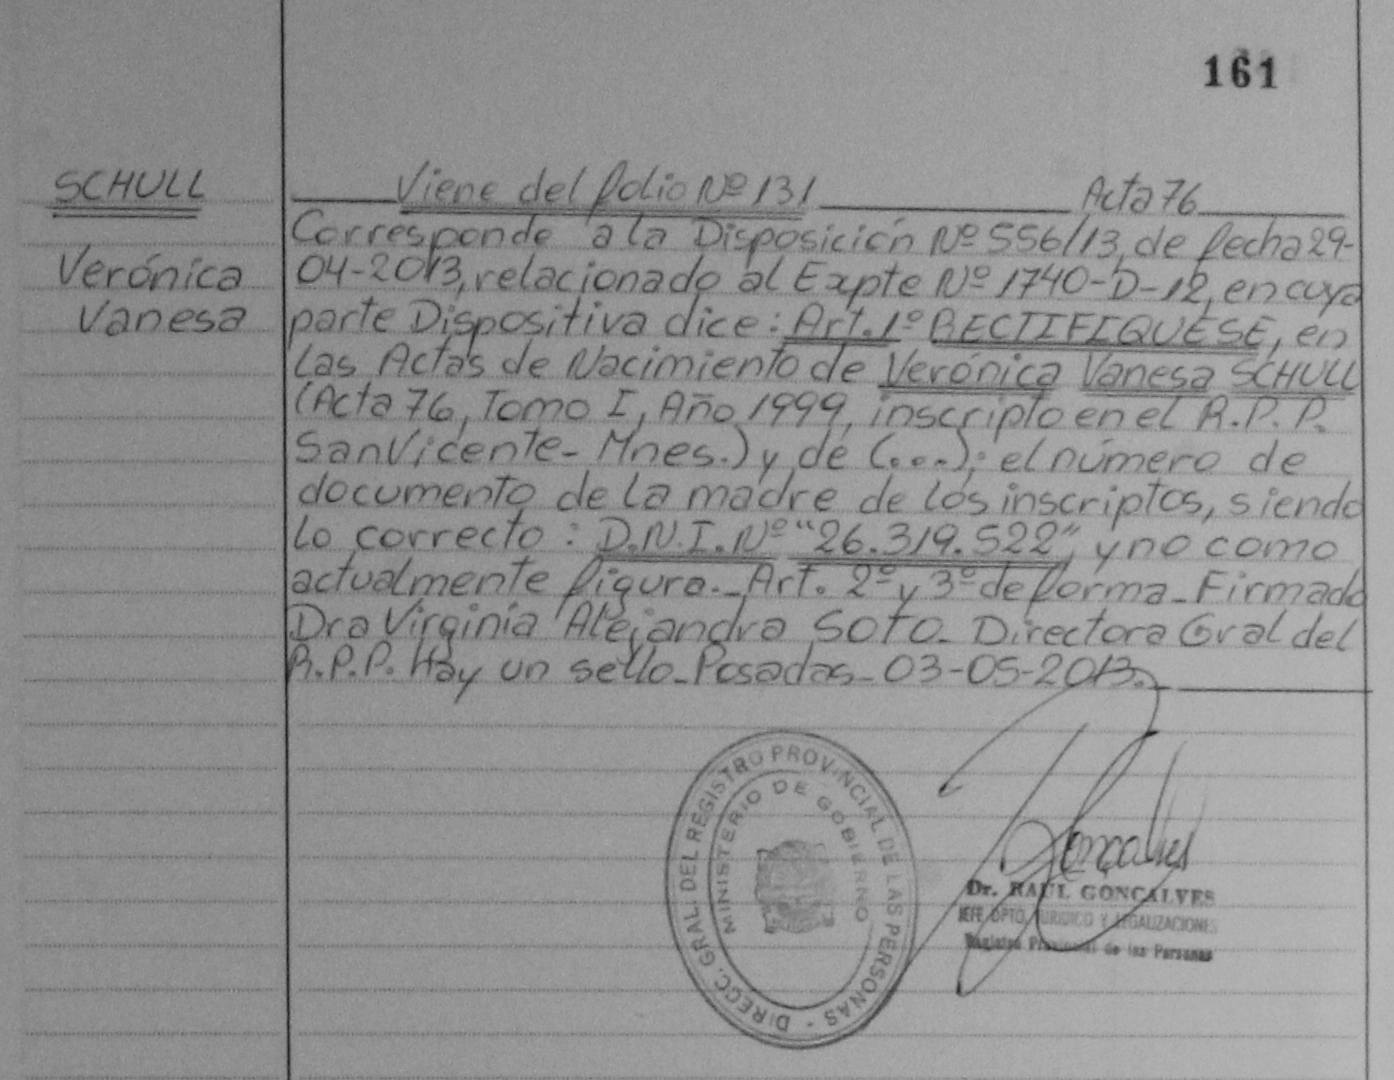 161
SCHULL
Verónica
Vanesa
Viene del folio Nº 131 Acta 76
Corresponde a la Disposición Nº 556/13, de fecha 29-
04-2013, relacionado al Expte Nº 1740-D-12, en cuya
parte Dispositiva dice: Art. 1º RECTIFIQUESE, en
las Actas de Nacimiento de Verónica Vanesa SCHULL
(Acta 76, Tomo I, Año 1999, inscripto en el R.P.P.
San Vicente- Mnes.) y de (...); el número de
documento de la madre de los inscriptos, siendo
lo correcto: D.N.I. Nº "26.319.522", y no como
actualmente figura.- Art. 2º y 3º de forma- Firmado
Dra Virginia Alejandra SOTO- Directora Gral del
R.P.P. Hay un sello- Posadas- 03-05-2013.-
DIRECC. GRAL. DEL REGISTRO PROVINCIAL DE LAS PERSONAS -
MINISTERIO DE GOBIERNO
Goncalves
Dr. RAUL GONCALVES
JEFE DPTO. JURIDICO Y LEGALIZACIONES
Registro Provincial de las Personas